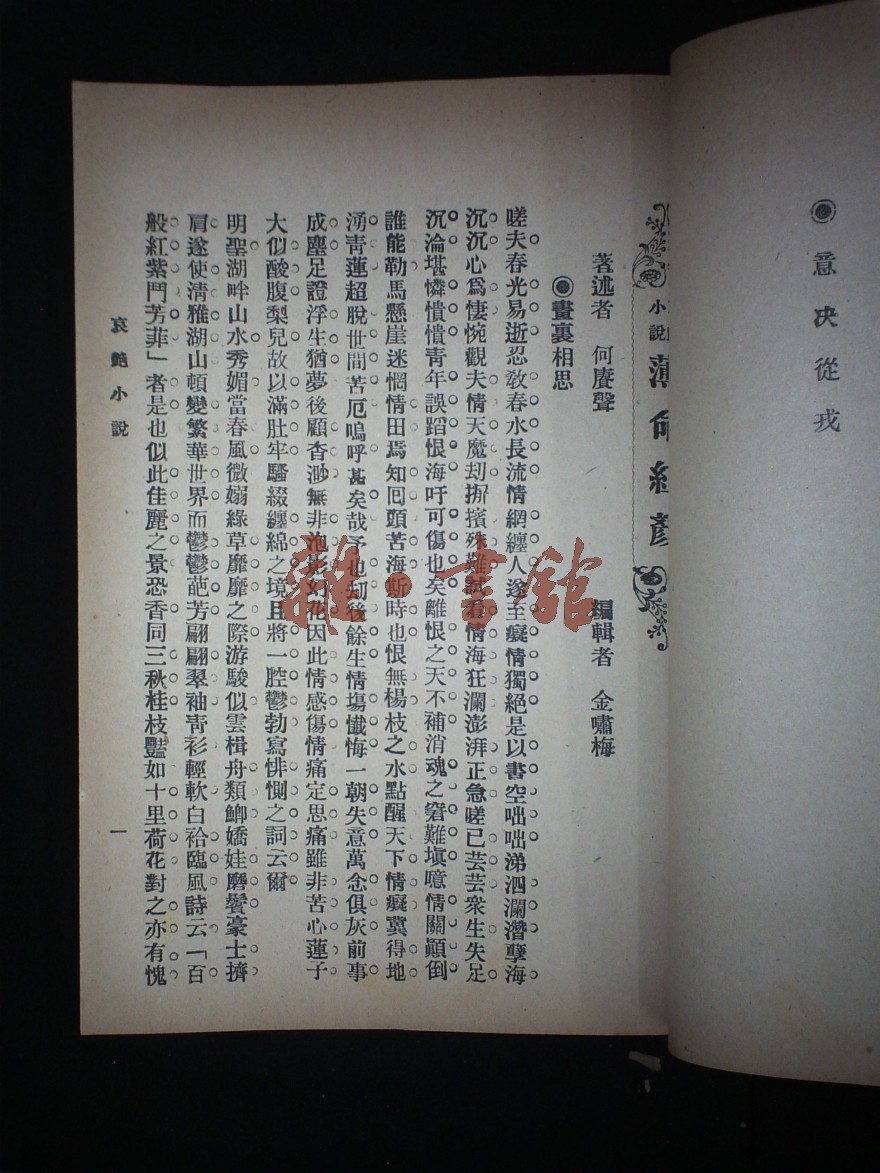 意決從戎
小說
薄命紅顏
著述者 何賡聲 編輯者 金嘯梅
畫裏相思
嗟夫春光易逝忍敎春水長流情網纏人遂至癡情獨絕是以書空咄咄涕泗瀾潸孽海
沉沉心爲悽惋觀夫情天魔刧摒擯殊難試看情海狂瀾澎湃正急嗟已芸芸衆生失足
沉淪堪憐憒憒靑年誤蹈恨海吁可傷也矣離恨之天不補消魂之窘難塡噫情關顚倒
誰能勒馬懸崖迷惘情田焉知囘頭苦海斯時也恨無楊枝之水點醒天下情癡冀得地
湧靑蓮超脫世間苦厄嗚呼甚矣哉予也刧後餘生情塲懺悔一朝失意萬念俱灰前事
成塵足證浮生猶夢後顧杳渺無非泡影幻花因此情感傷情痛定思痛雖非苦心蓮子
大似酸腹梨兒故以滿肚牢騷綴纏綿之境且將一腔鬱勃寫悱惻之詞云爾
明聖湖畔山水秀媚當春風微嫋綠草靡靡之際游駿似雲楫舟類鯽嬌娃磨鬢豪士擠
肩遂使淸雅湖山頓變繁華世界而鬱鬱葩芳翩翩翠袖靑衫輕軟白袷臨風詩云「百
般紅紫鬥芳菲」者是也似此佳麗之景恐香同三秋桂枝豔如十里荷花對之亦有愧
哀艷小說
一
雜·書館